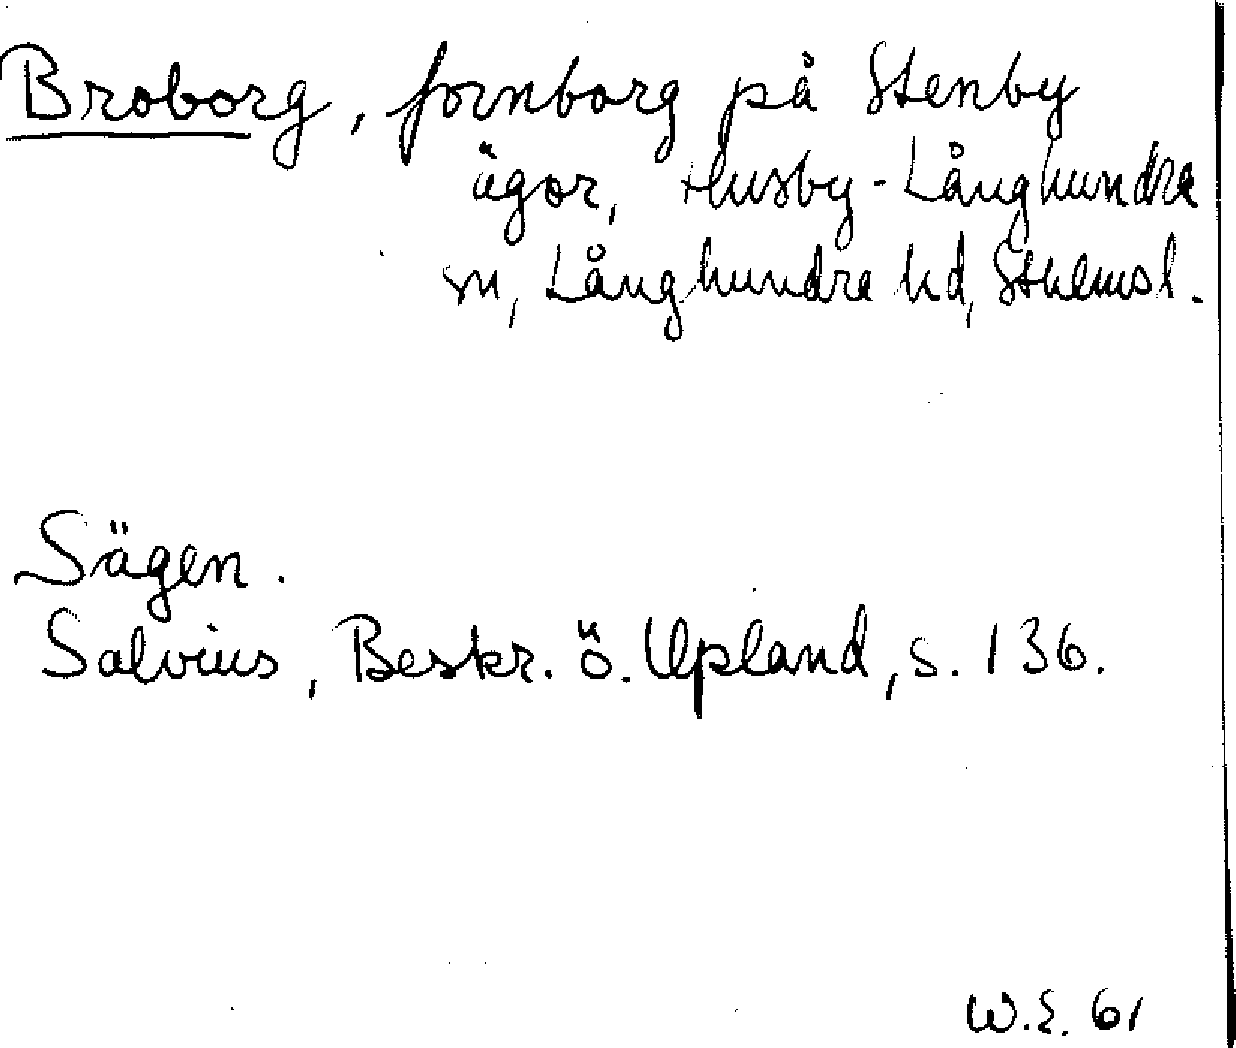 Broborg, fornborg på Stenby
ägor, Husby-Långhundra
sn, Långhundra hd, Sthlmsl.
Sägen.
Salvius, Beskr. ö. Upland, s. 136.
W.E. 61